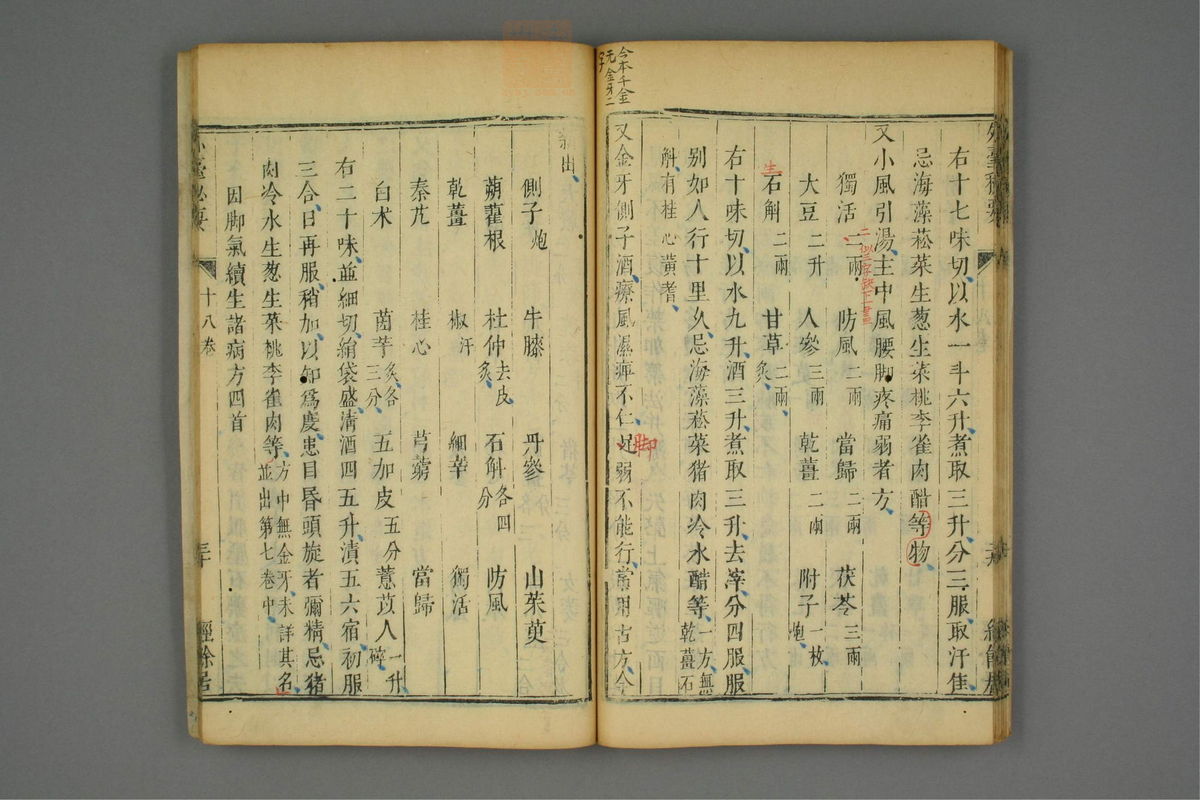 右十七味切以水一斗六升煮取三升分三服取汗佳
忌海藻菘菜生葱生菜桃李雀肉醋等物
又小風引湯主中風腰脚疼痛弱者方
獨活二兩 防風二兩 當歸二兩 茯苓三兩
大豆二升 人參三兩 乾薑二兩 附子一枚炮
生
石斛二兩 甘草炙二兩
右十味切以水九升酒三升煮取三升去滓分四服服
別如人行十里久忌海藻菘菜猪肉冷水醋等一方無乾薑石
斛有桂心黃耆
又金牙側子酒療風濕痹不仁脚弱不能行常用古方今
脚
今本千金
无金牙二
字
新出
側子炮 牛膝 丹參 山茱萸
蒴藋根 杜仲去皮炙 石斛各四分 防風
乾薑 椒汗 細辛 獨活
秦艽 桂心 芎藭 當歸
白术 茵芋炙各三分 五加皮五分 薏苡人一升碎
右二十味並細切絹袋盛清酒四五升漬五六宿初服
三合日再服稍加以知爲度患目昏頭旋者彌精忌猪
肉冷水生葱生菜桃李雀肉等方中無金牙未詳其名並出第七卷中
因脚氣續生諸病方四首
外臺秘要 十八卷 三十 經餘居